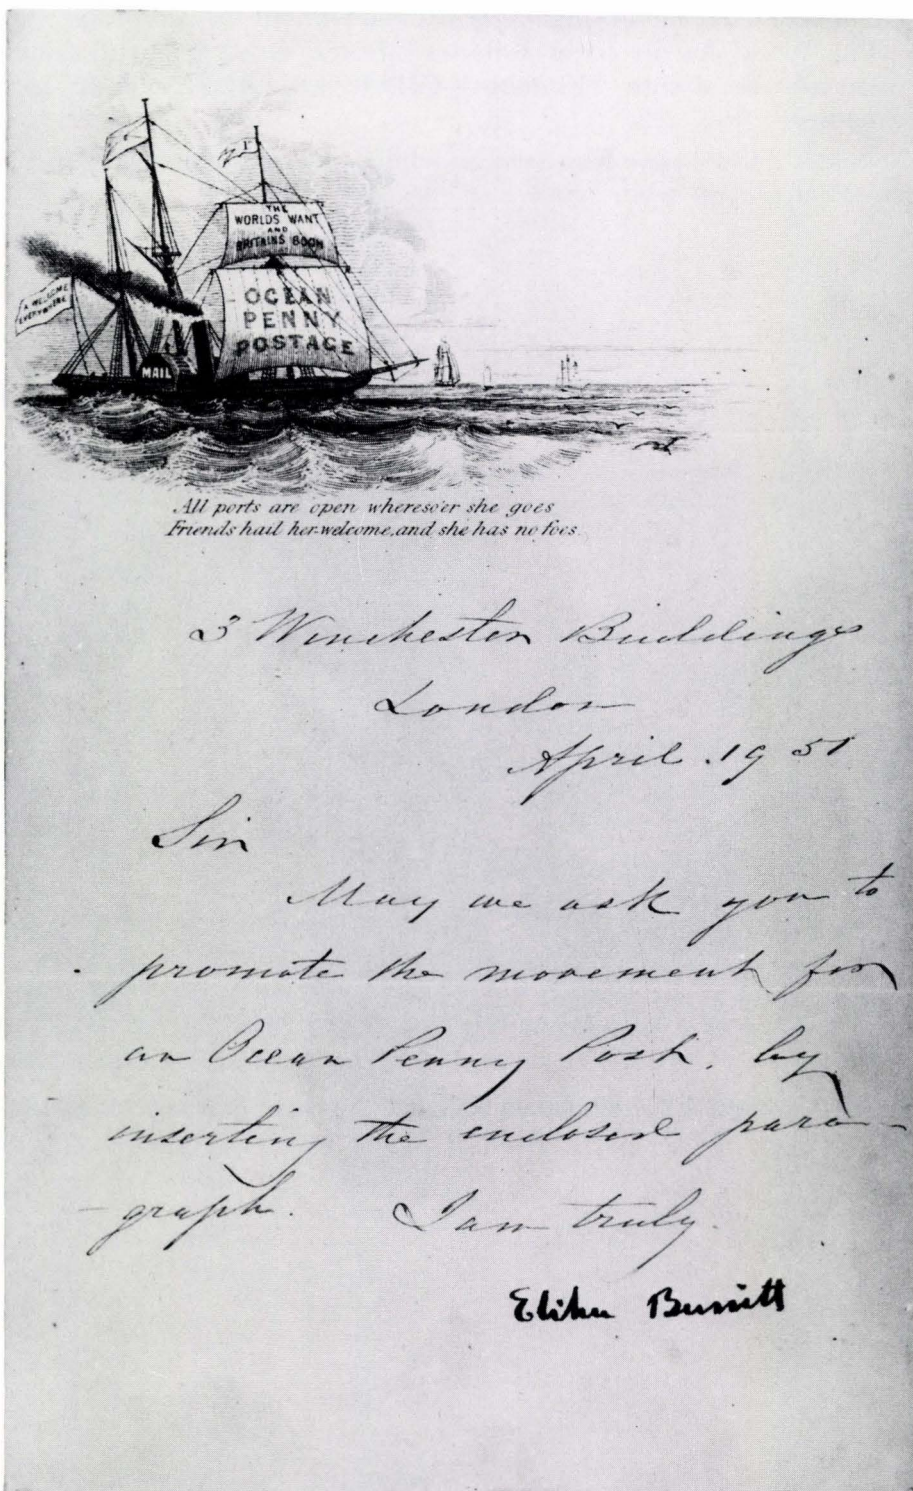 THE
WORLDS WANT
AND
BRITAINS BOON
OCEAN
PENNY
POSTAGE
A WELCOME
EVERYWHERE
MAIL
All ports are open whereso'er she goes
Friends hail her welcome, and she has no foes.
3 Winchester Buildings
London
April .19 51
Sir
May we ask you to
promote the movement for
an Ocean Penny Post, by
inserting the enclosed para-
-graph. I am truly.
Elihu Burritt